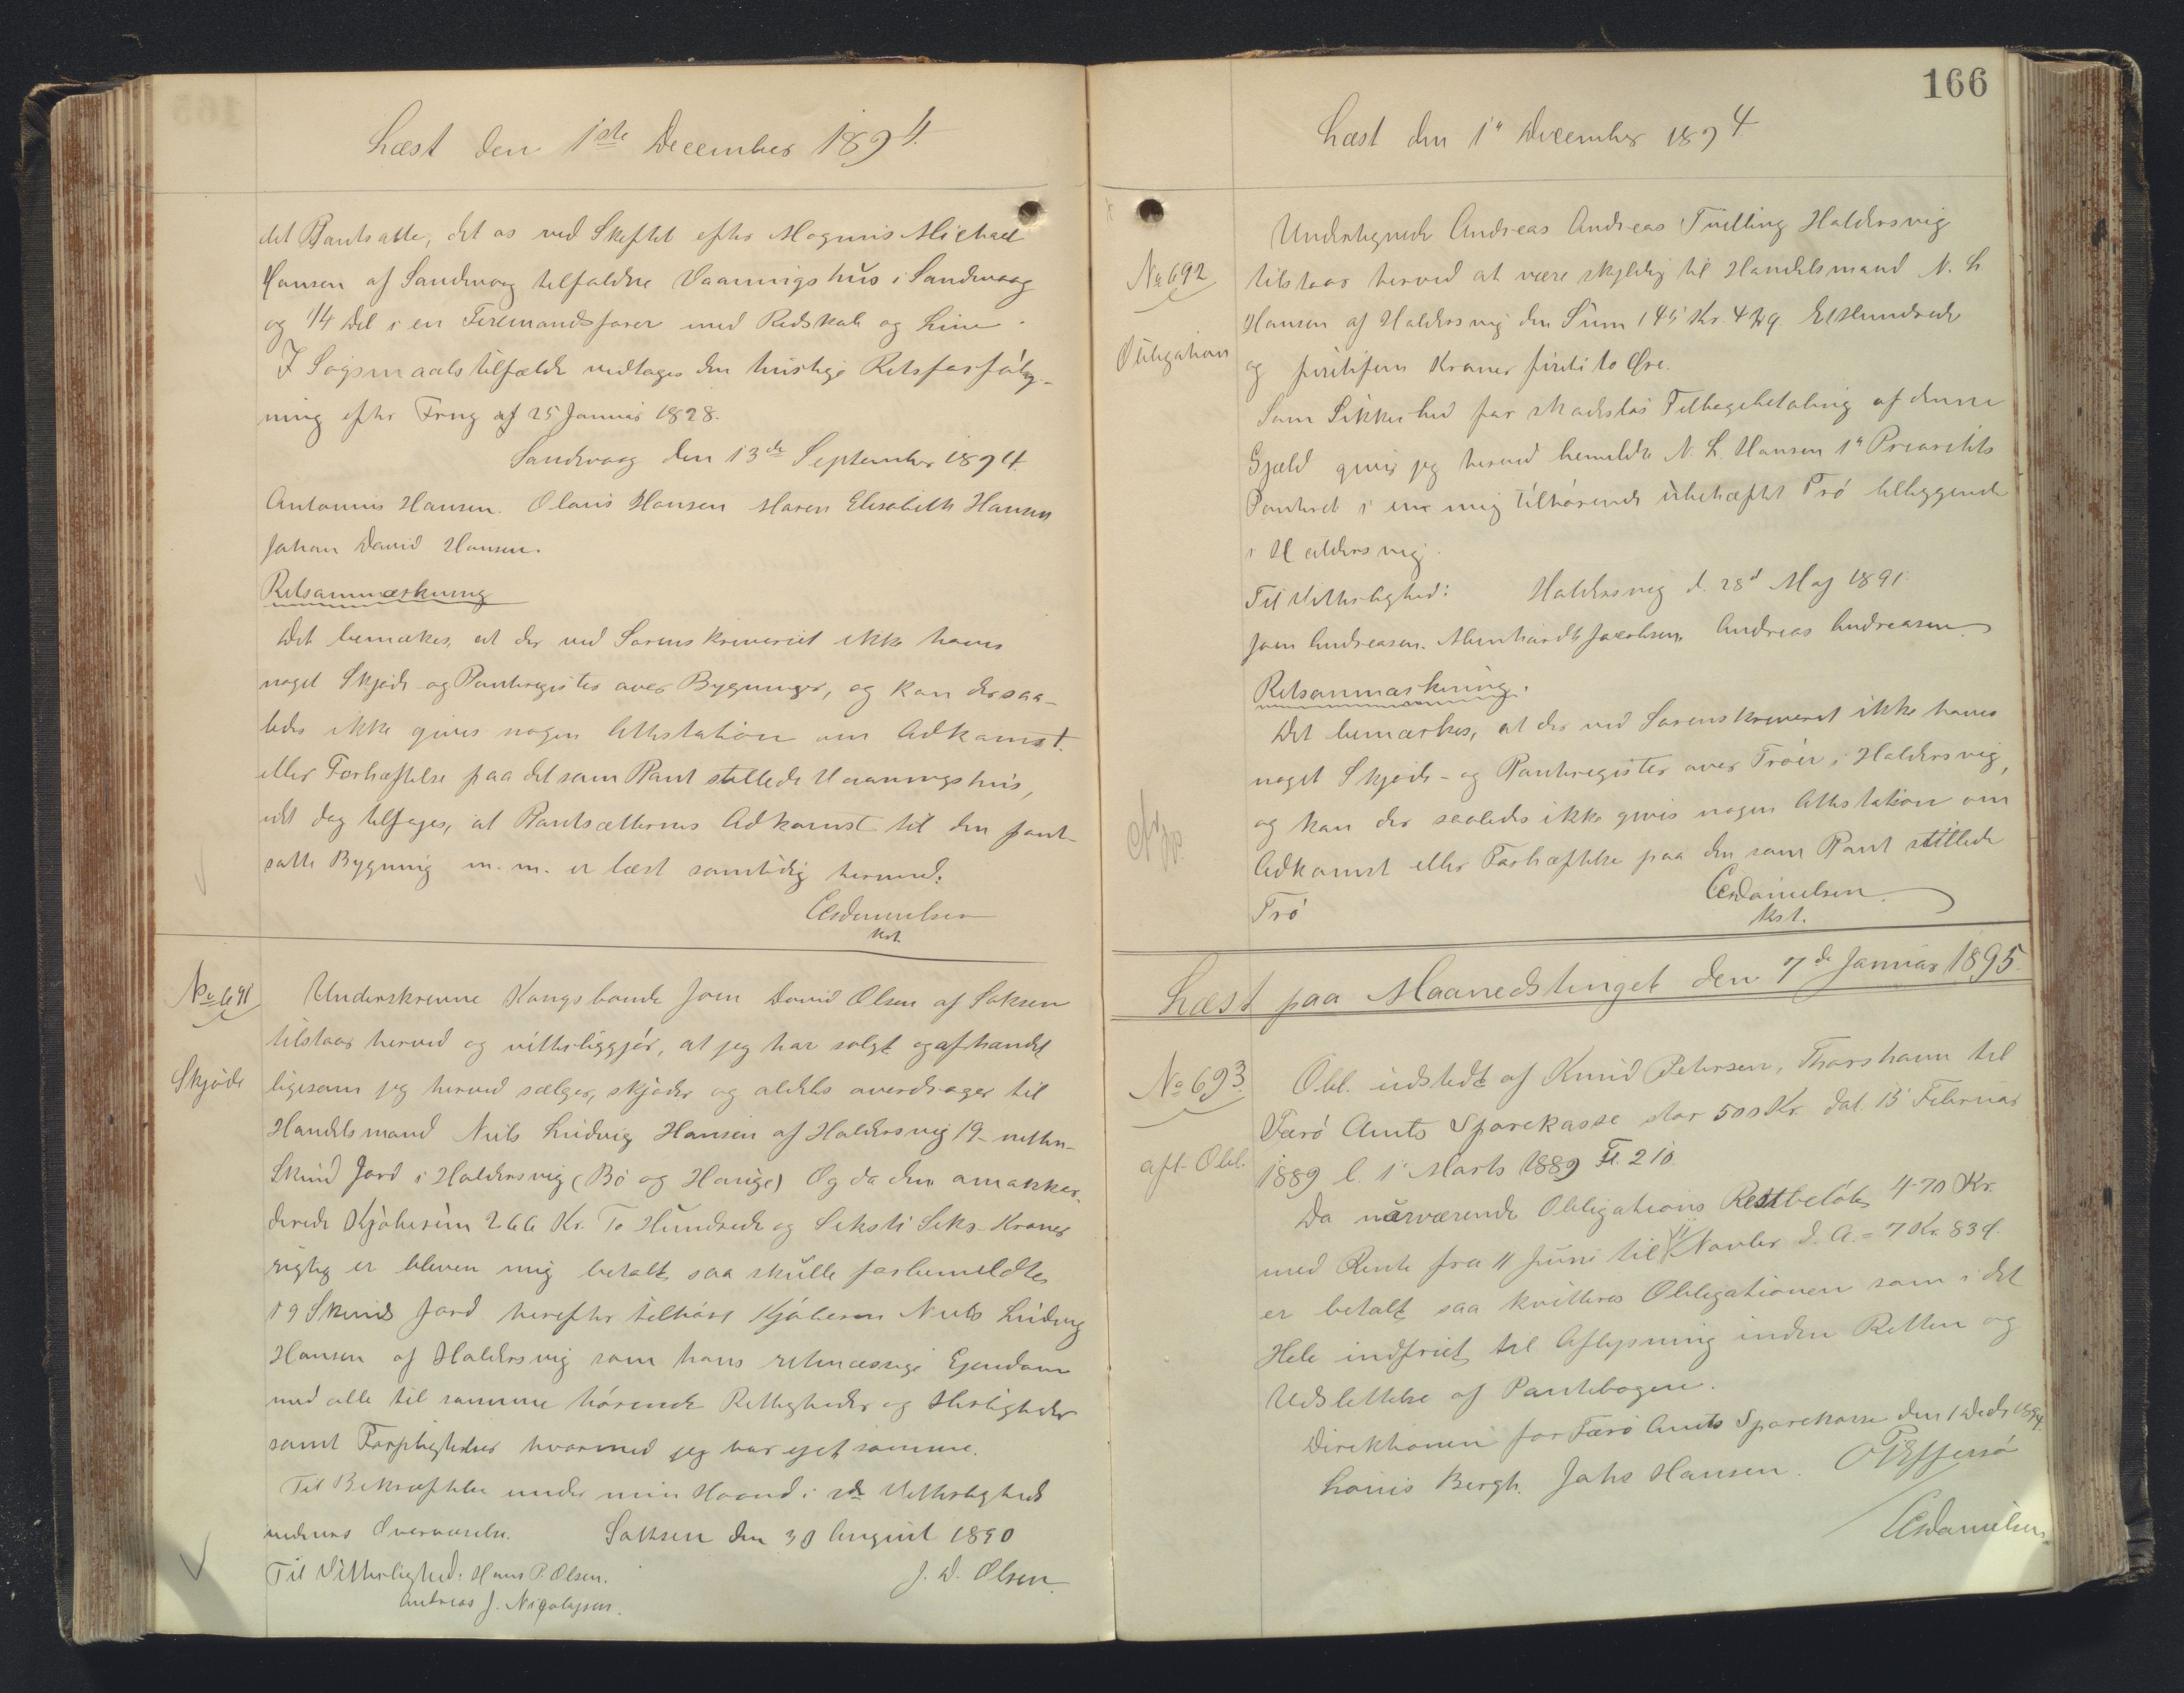 Læst den 1ste December 1894.
det Pantsatte, det os ved Skiftet efter Magnus Michael
Hansen af Sandvaag tilfaldne Vaaningshus i Sandvaag
og 1/4 Del i en Firemandsfarer med Redskab og Line.
I Søgsmaalstilfælde vedtages den hurtige Retsforfølg-
ning efter Frng af 25 Januar 1828.
Sandvaag den 13de September 1894
Antonius Hansen. Olaus Hansen Maren Elisabeth Hansen
Johan David Hansen.
Retsanmærkning
Det bemærkes, at der ved Sorenskriveriet ikke haves
noget Skjøde- og Panteregister over Bygninger, og kan der saa-
ledes ikke gives nogen Attestation om Adkomst
eller Forhæftelse paa det som Pant stillede Vaaningshus,
idet dog tilføjes, at Pantsætternes Adkomst til den pant-
satte Bygning m. m. er læst samtidig hermed.
CADanielsen
kst.
No 691
Skjøde
Underskrevne Kongsbonde Joen David Olsen af Saksen
tilstaar herved og vitterliggjør, at jeg har solgt og afhændet
ligesom jeg herved sælger, skjøder og aldeles overdrager til
Handelsmand Niels Ludvig Hansen af Haldersvig 19 - nitten -
Skind Jord i Haldersvig (Bø og Hauge) Og da den omakkor-
derede Kjøbesum 266 Kr. To Hundrede og Seksti Seks Kroner
rigtig er bleven mig betalt, saa skulle forbemeldte
19 Skinds Jord herefter tilhøre Kjøberen Niels Ludvig
Hansen af Haldersvig som hans retmæssige Ejendom
med alle til samme hørende Rettigheder og Herligheder
samt Forpligtelser hvormed jeg har ejet samme.
Til Bekræftelse under min Haand i 2de Vitterligheds
vidners Overværelse. Saksen den 30 August 1890
Til Vitterlighed: Hans P. Olsen. J. D. Olsen
Andreas J. Nigolajsen.
166
Læst den 1" December 1894
No 692
Obligation
Undertegnede Andreas Andreas Tvilling Haldersvig
tilstaar herved at være skyldig til Handelsmand N. L.
Hansen af Haldersvig den Sum 145 Kr. 42 Ø. Ethundrede
og firtifem Kroner firti to Øre.
Som Sikkerhed for skadesløs Tilbagebetaling af denne
Gjæld giver jeg herved bemeldte N. L. Hansen 1" Prioritets
Panteret i en mig tilhørende ubehæftet Trø beliggende
i Haldersvig.
Til Vitterlighed: Haldersvig d. 28d Maj 1891
Joen Andreasen. Meinhardt Jacobsen, Andreas Andreasen
Retsanmærkning.
Det bemærkes, at der ved Sorenskriveriet ikke haves
noget Skjøde- og Panteregister over Trøer i Haldersvig,
og kan der saaledes ikke gives nogen Attestation om
Adkomst eller Forhæftelse paa den som Pant stillede
Trø
CADanielsen
kst.
Læst paa Maanedstinget den 7de Januar 1895.
No 693.
afl. Obl.
Obl. udstedt af Knud Petersen, Thorshavn til
Færø Amts Sparekasse stor 500 Kr. dat. 15 Februar
1889 l. 1' Marts 1889 Fl. 210.
Da nærværende Obligations Restbeløb 470 Kr.
med Rente fra 11 Juni til 11 Novbr d. A. = 7 Kr. 83 Ø.
er betalt saa kvitteres Obligationen som i det
Hele indfriet til Aflysning inden Retten og
Udslettelse af Pantebogen.
Direktionen for Færø Amts Sparekasse den 1 Decbr 1894.
Louis Bergh. Johs Hansen. OEffersø
CADanielsen